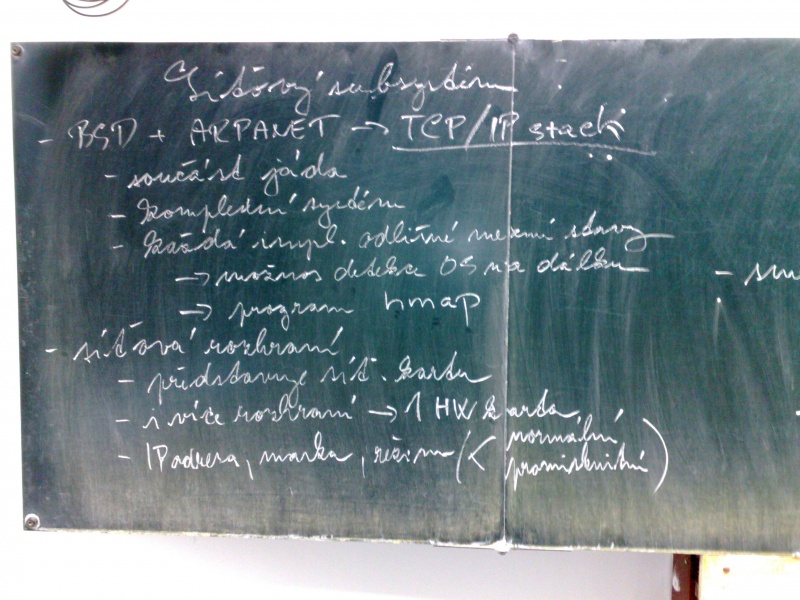 Síťový subsystém
- BSD + ARPANET → TCP/IP stack
- součást jáda
- komplexní systém
- každá impl. odlišné mezní stavy
→ možnos detekce OS na dálku
→ program nmap
- síťová rozhraní
- představuje síť. kartu
- i více rozhraní → 1 HW karta
- IP adresa, maska, režim ( < normální
promiskuitní )
-